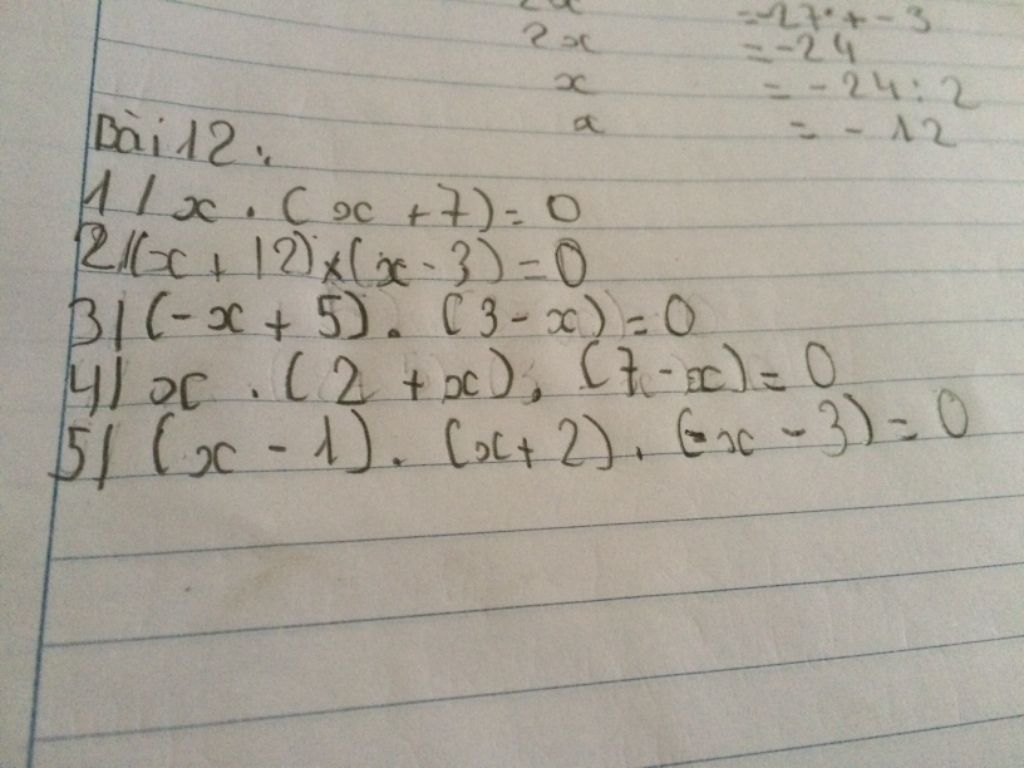 2x = -27 + - 3
2x = - 24
x = - 24 : 2
x = - 12
Bài 12.
1/ x . ( x + 7) = 0
2/(x + 12)×(x - 3) = 0
3/ (-x + 5) . (3 - x) = 0
4/ x . (2 + x) . (7 - x) = 0
5/ (x - 1) . (x + 2) . (-x - 3) = 0